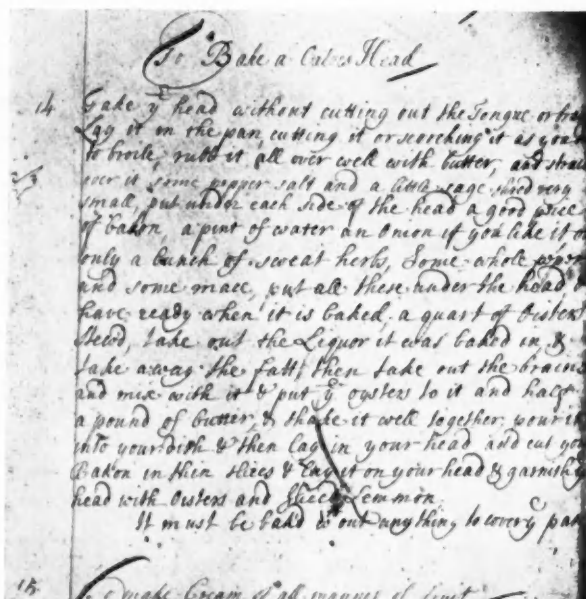 To Bake a Calves Head
14 Take yᵉ head without cutting out the Tongue or
Lay it in the pan, cutting it or scorching it as you
to broile, rubb it all over well with butter, and
over it some pepper salt and a little sage shred very
small, put under each side of the head a good peice
of bakon a pint of water an onion if you like it or
only a bunch of sweat herbs, Some whole
and some mace, put all these under the head &
have ready when it is baked, a quart of Oisters
stewd, take out the Liquor it was baked in, &
take away the fatt, then take out the brains
and mix with it & put yᵉ oysters to it and half
a pound of butter, & shake it well together, pour it
into your dish & then lay in your head and cut
Bakon in thin slices & Lay it on your head & garnish
head with Oisters and sliced Lemmon
It must be bak'd wᵗout anything to cover yᵉ pan
15 To make Cream of all manner of fruit